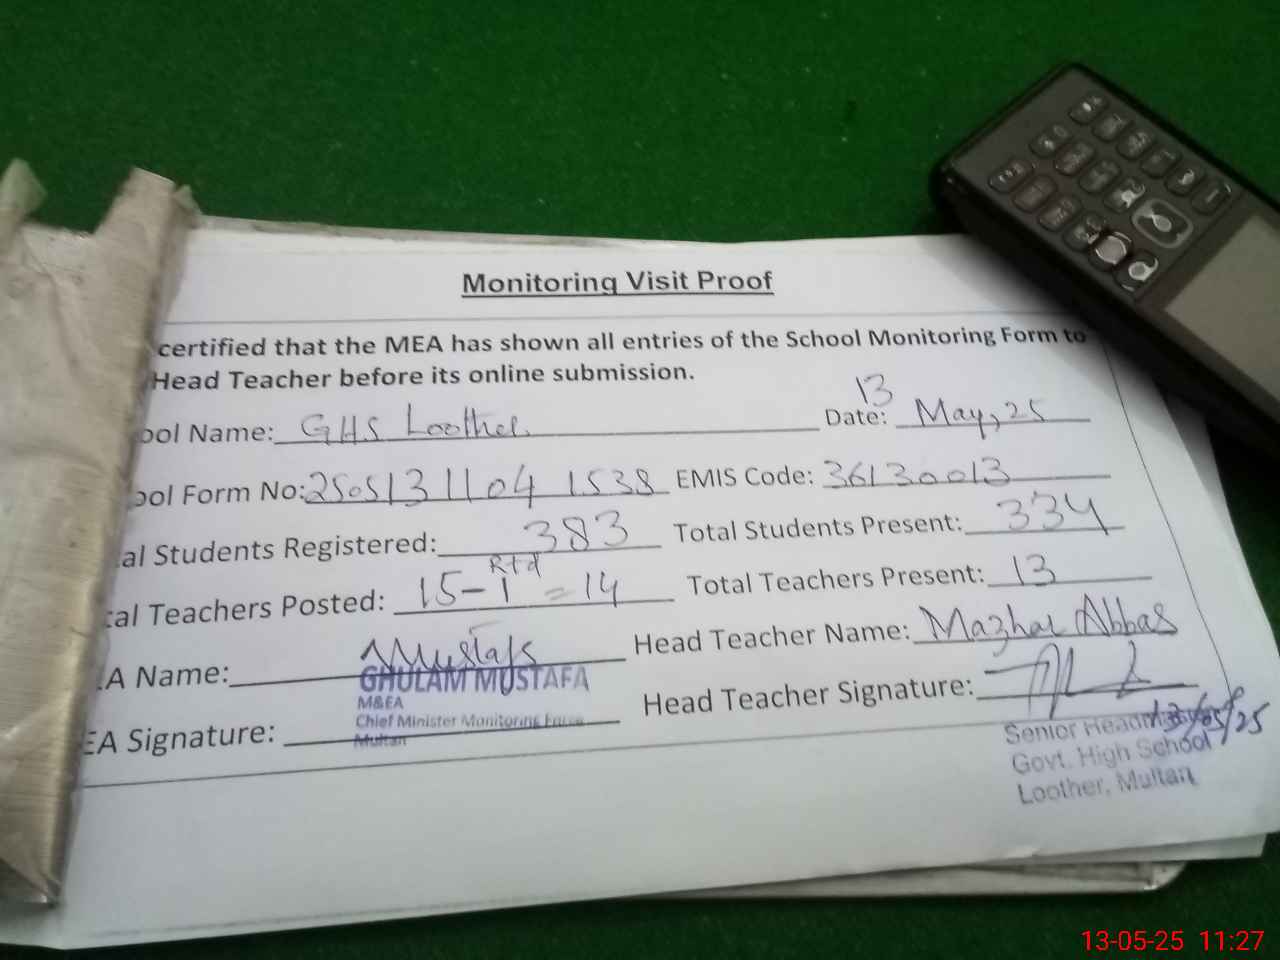 Monitoring Visit Proof
certified that the MEA has shown all entries of the School Monitoring Form to
Head Teacher before its online submission.
ool Name: GHS Loother Date: 13 May, 25
ool Form No: 2505131104 1538 EMIS Code: 36130013
al Students Registered: 383 Total Students Present: 334
tal Teachers Posted: 15-1 Rtd = 14 Total Teachers Present: 13
A Name: Mustafa Head Teacher Name: Mazhar Abbas
GHULAM MUSTAFA
M&EA
Chief Minister Monitoring Force
Multan
EA Signature: Head Teacher Signature:
13/05/25
Senior
Govt. High School
Loother, Multan
13-05-25 11:27